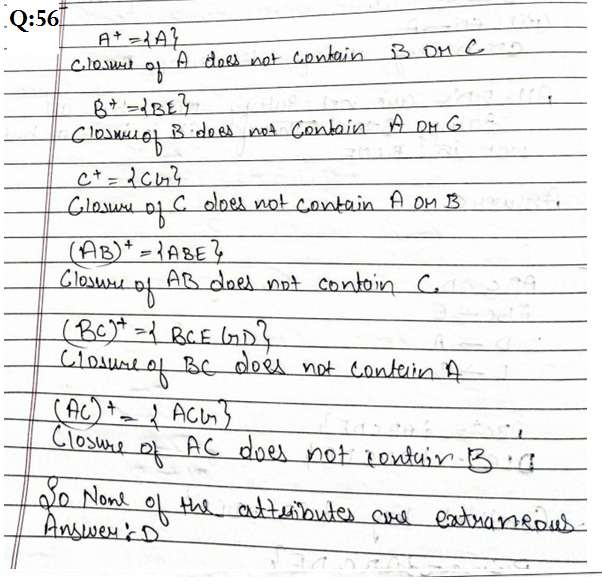 Q:56
A+ = {A}
Closure of A does not contain B or C
B+ = {BE}
Closure of B does not contain A or G
C+ = {CG}
Closure of C does not contain A or B
(AB)+ = {ABE}
Closure of AB does not contain C.
(BC)+ = { BCE GD}
Closure of BC does not contain A
(AC)+ = { ACG}
Closure of AC does not contain B.
So None of the attributes are extraneous.
Answer: D